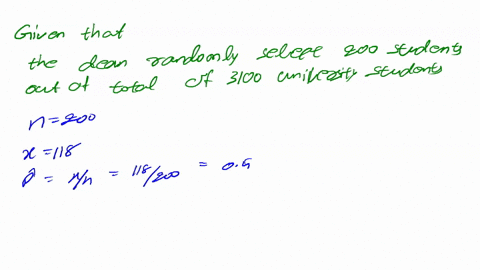 Given that
the dean randomly select 200 students
out of total of 3100 university students
n=200
x=118
p̂ = x/n = 118/200 = 0.5